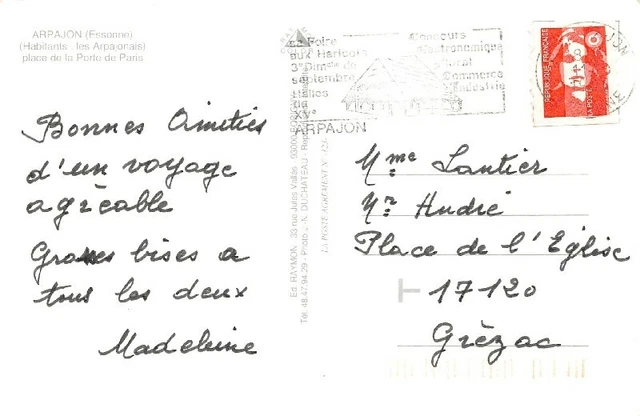 ARPAJON (Essonne)
(Habitants : les Arpajonais)
place de la Porte de Paris
La Foire
aux Haricots
3e Dimche de
septembre
Halles
du
XVe
ARPAJON
Concours
gastronomique
floral
Commerce
Industrie
REPUBLIQUE FRANÇAISE
LA POSTE
Bonnes Amitiés
d'un voyage
agréable
Grosses bises a
tous les deux
Madeleine
Ed. RAYMON - 33 rue Jules Vallès - 93000
Tél. 48.47.94.29 - Photo J.-N. DUCHATEAU
LA POSTE AGREMENT N°
Mme Lantier
Mr André
Place de l'Eglise
17120
Grèzac